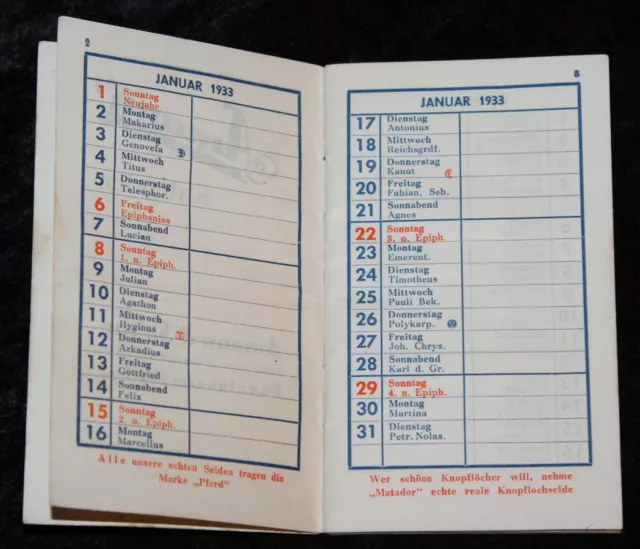 2
JANUAR 1933
1 Sonntag
Neujahr
2 Montag
Makarius
3 Dienstag
Genovefa
4 Mittwoch
Titus
5 Donnerstag
Telesphor.
6 Freitag
Epiphanius
7 Sonnabend
Lucian
8 Sonntag
1. n. Epiph.
9 Montag
Julian
10 Dienstag
Agathon
11 Mittwoch
Hyginus
12 Donnerstag
Arkadius
13 Freitag
Gottfried
14 Sonnabend
Felix
15 Sonntag
2. n. Epiph.
16 Montag
Marcellus
Alle unsere echten Seiden tragen die
Marke „Pferd"
3
JANUAR 1933
17 Dienstag
Antonius
18 Mittwoch
Reichsgrdf.
19 Donnerstag
Kanut
20 Freitag
Fabian, Seb.
21 Sonnabend
Agnes
22 Sonntag
3. n. Epiph.
23 Montag
Emerent.
24 Dienstag
Timotheus
25 Mittwoch
Pauli Bek.
26 Donnerstag
Polykarp.
27 Freitag
Joh. Chrys.
28 Sonnabend
Karl d. Gr.
29 Sonntag
4. n. Epiph.
30 Montag
Martina
31 Dienstag
Petr. Nolas.
Wer schöne Knopflöcher will, nehme
„Matador" echte reale Knopflochseide